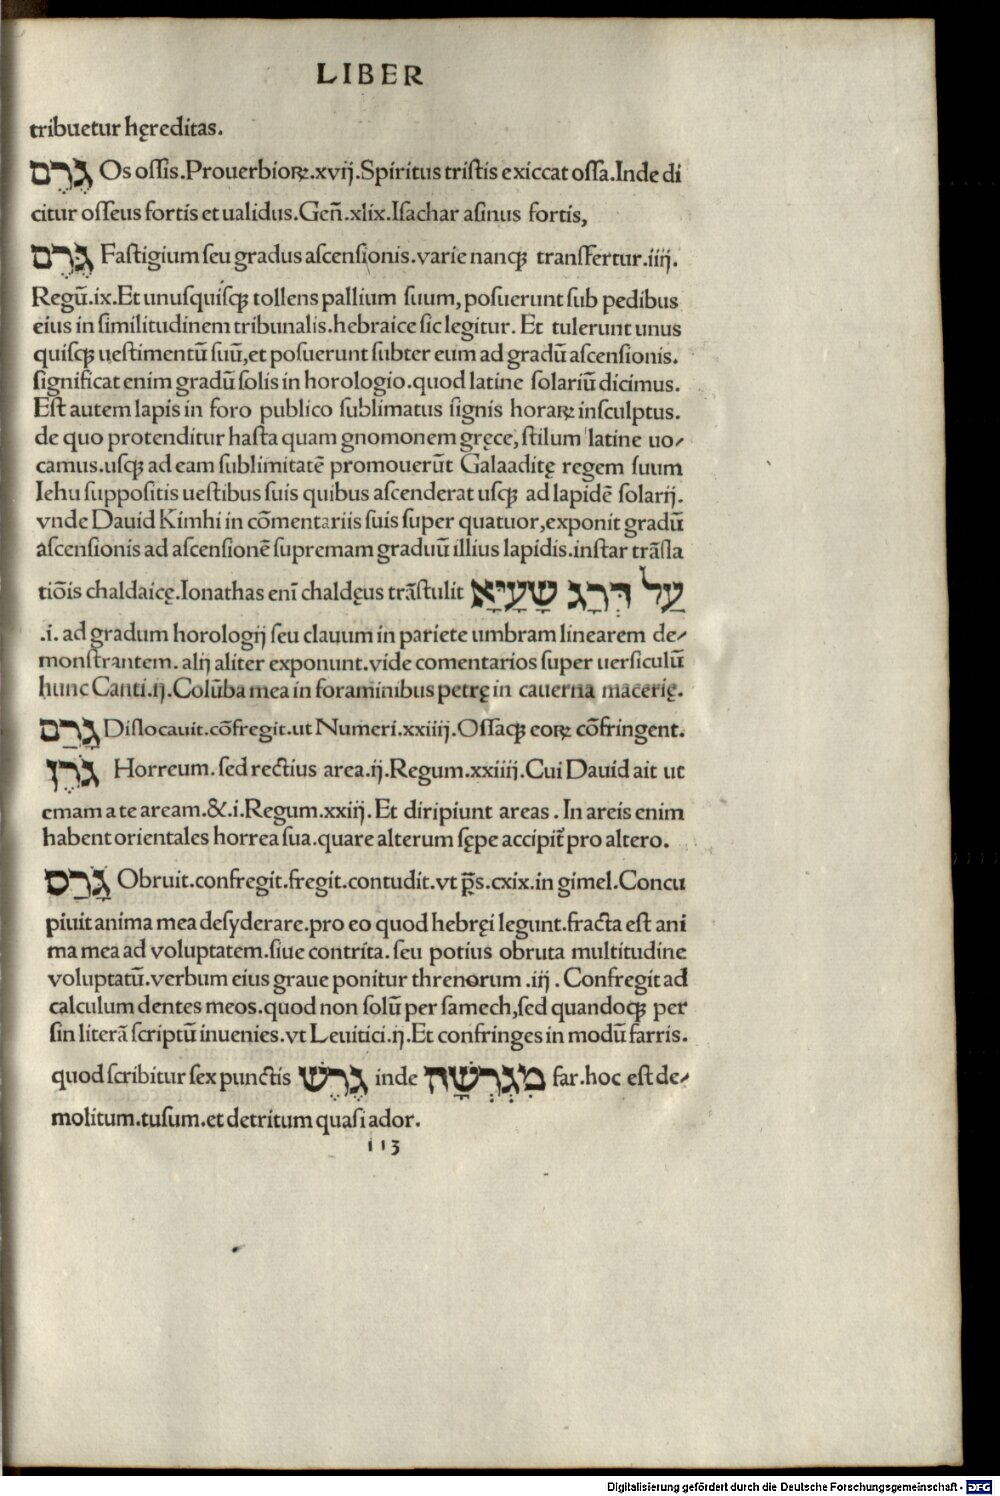 LIBER
tribuetur hęreditas.
גֶּרֶם Os ossis.Prouerbioꝝ.xvij.Spiritus tristis exiccat ossa.Inde di
citur osseus fortis et ualidus.Geñ.xlix.Isachar asinus fortis,
גֶּרֶם Fastigium seu gradus ascensionis.varie nanqꝫ transfertur.iiij.
Regũ.ix.Et unusquisqꝫ tollens pallium suum,posuerunt sub pedibus
eius in similitudinem tribunalis.hebraice sic legitur. Et tulerunt unus
quisqꝫ uestimentũ suũ,et posuerunt subter eum ad gradũ ascensionis.
significat enim gradũ solis in horologio.quod latine solariũ dicimus.
Est autem lapis in foro publico sublimatus signis horaꝝ insculptus.
de quo protenditur hasta quam gnomonem gręce,stilum latine uo⸗
camus.usqꝫ ad eam sublimitatẽ promouerũt Galaaditę regem suum
Iehu suppositis uestibus suis quibus ascenderat usqꝫ ad lapidẽ solarij.
vnde Dauid Kimhi in cõmentariis suis super quatuor,exponit gradũ
ascensionis ad ascensionẽ supremam graduũ illius lapidis.instar trãsla
tiõis chaldaicę.Ionathas enĩ chaldęus trãstulit עַל דְּרַג שָׁעַיָּא
.i. ad gradum horologij seu clauum in pariete umbram linearem de⸗
monstrantem. alij aliter exponunt.vide comentarios super uersiculũ
hunc Canti.ij.Colũba mea in foraminibus petrę in cauerna macerię.
גָּרַם Dislocauit.cõfregit.ut Numeri.xxiiij.Ossaqꝫ eoꝝ cõfringent.
גֹּרֶן Horreum.sed rectius area.ij.Regum.xxiiij.Cui Dauid ait ut
emam a te aream.&.i.Regum.xxiij.Et diripiunt areas.In areis enim
habent orientales horrea sua.quare alterum sępe accipit̃ pro altero.
גָּרַס Obruit.confregit.fregit.contudit.vt p̃s.cxix.in gimel.Concu
piuit anima mea desyderare.pro eo quod hebręi legunt.fracta est ani
ma mea ad voluptatem.siue contrita.seu potius obruta multitudine
voluptatũ.verbum eius graue ponitur threnorum.iij.Confregit ad
calculum dentes meos.quod non solũ per samech,sed quandoqꝫ per
sin literã scriptũ inuenies.vt Leuitici.ij.Et confringes in modũ farris.
quod scribitur sex punctis גֶּרֶשׂ inde מִגְרְשָׂהּ far.hoc est de⸗
molitum.tusum.et detritum quasi ador.
113
Digitalisierung gefördert durch die Deutsche Forschungsgemeinschaft - DFG